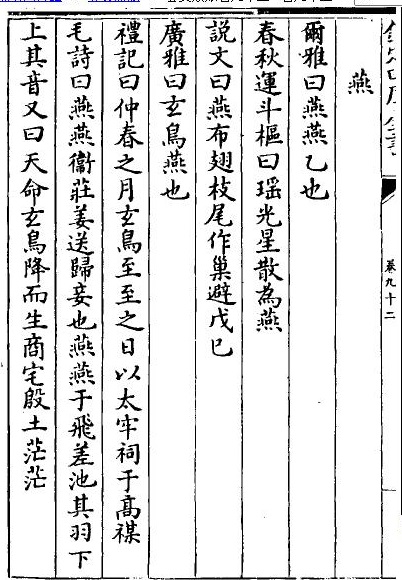 燕
爾雅曰燕燕乙也
春秋運斗樞曰瑶光星散為燕
說文曰燕布翅枝尾作巢避戊巳
廣雅曰玄鳥燕也
禮記曰仲春之月玄鳥至至之日以太牢祠于高禖
毛詩曰燕燕衞莊姜送歸妾也燕燕于飛差池其羽下
上其音又曰天命玄鳥降而生商宅殷土茫茫
卷九十二